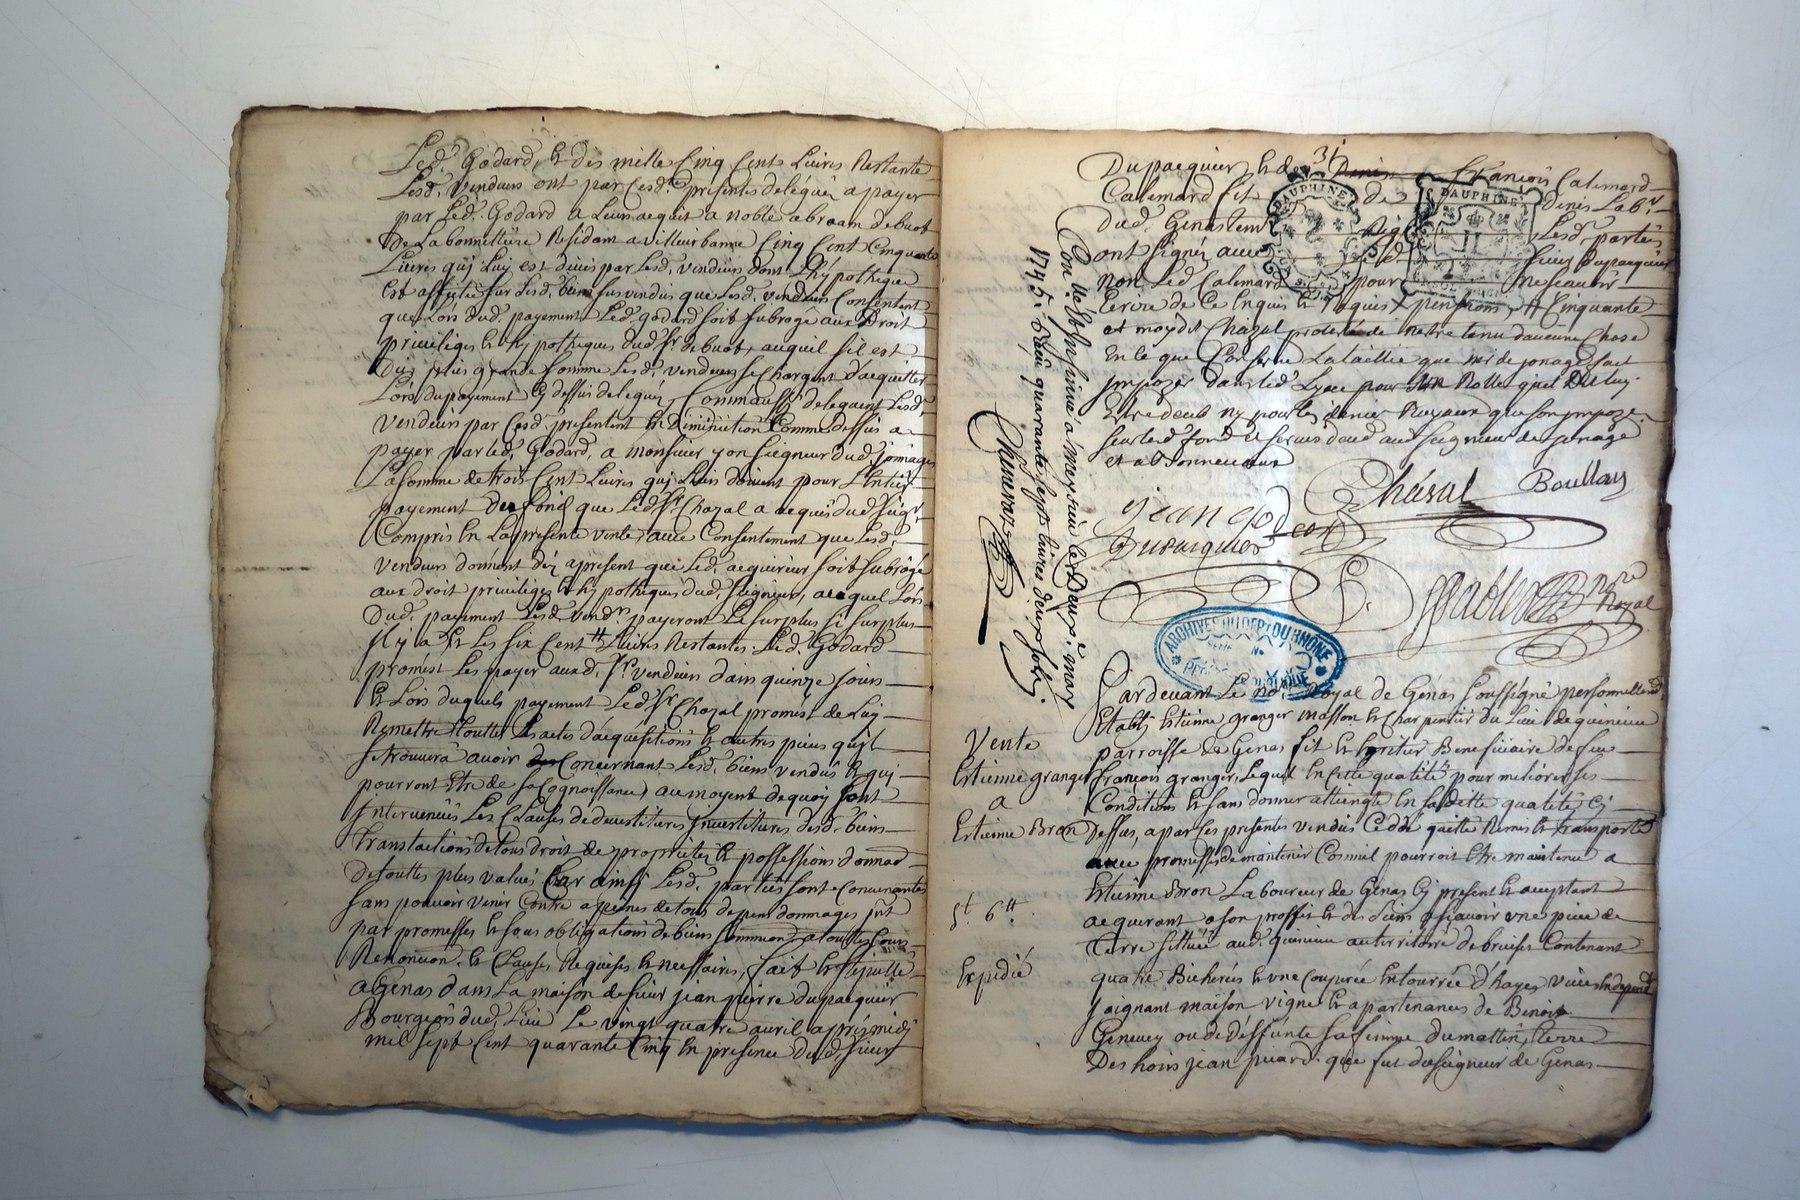 Led. Godard, et des mille Cinq Cent Livres Restante
Lesd. Vendeurs ont par Cesd. presentes deleguéz a payer
par Led. Godard a Leur acquit a noble abraam debuot
de La bonnettiere Residam a villeurbanne Cinq Cent Cinquante
Livres quj Luy est dües par Lesd. vendeurs dont L'hypotheque
est affectée sur Lesd. biens sus vendus que Lesd. vendeurs Consentent
que Lors dud. payement Led. godard soit subrogé aux Droit
privileges et hypotheques dud. Sr. debuot, auquel s'il est
dus plus grande somme Lesd. vendeurs se Chargent d'acquitter
Lors du payement Cy dessus delegué, Comm'aussy delegaient Lesd.
vendeurs par Cesd. presentent en Diminution Comme dessus a
payer par led. Godard, a monsieur mon seigneur dud. jonnages
La somme de trois Cent Livres quj Leurs doivent pour L'entier
payement du fond que Led. Sr. Chazal a acquis dud. seigr.
Compris en La presente vente, avec Consentement que Lesd.
vendeurs donnent déz apresent que Led. acquereur soit subrogé
aux droit privileges et hypotheques dud. seigneur, auquel Lors
dud. payement Lesd. vendrs. payeront Le surplus si surplus
Il y a Et Les six Cent tt Livres Restantes Led. Godard
promest Les payer auxd. Srs. vendeurs dans quinze jours
Et Lors duquels payement Led. Sr. Chazal promest de Luy
Remettre touttes Les actes d'acquisitions et autres pieces qu'il
se trouvera avoir Concernant Lesd. biens vendus et quj
pourront Etre de sa Cognoissance, au moyent dequoy sont
Intervenües Les Clauses de devestitures Investitures desd. biens
translactions de tous droit de proprietéz et possessions donnaõ
de touttes plus values Car ainsy Lesd. parties sont Convenantes
sans pouvoir venir Contre a peines de tous depens dommages jnt
par promesses et sous obligations de biens soumissions a touttes Cours
Renonciaon. et Clauses Requises et necessaires, fait et stipullé
a Genas dans La maison de sieur jean pierre dupacquier
Bourgeois dud. Lieu Le vingt quatre avril aprés midj
mil sept Cent quarante Cinq en presence dud. sieur
31
Dupacquier, et de Denis François Calemard
Calemard fil de Denis Labr.
dud. Genas tem Lesd. parties
ont signéz avec Led. sieur dupacquier
non Led. Calemard pour ne scavoir
Ecrire de Ce Enquis et Requis
et moydit Chazal proteste de n'etre tenu d'aucune Chose
En Ce que Concerne La taillie que mr de jonages fait
jmpozer dans led. Lyeue pour son Rolle quel Dit Luy
Etre deub ny pour les denier Royaux que son jmpozé
sur led. fond Et servis daud. aud. seigneur de jonage
et abonnevaux
DAUPHINE
DAUPHINE
Chazal
Boullay
jean godeard
Dupacquier
Royal
Con. lle Et Insinué a Meyzieu le Deux may
1745. Reçu quarante sept livres deux sols
ARCHIVES DU DEPT DU RHONE
Pardevant Le no. Royal de Genas soussigné personnellemt.
Etably Estienne granger masson et Charpentier du Lieu de quinieu
parroisse de Genas fils et heritier Beneficiaire de feu
françois granger, Lequel En Cette qualité pour meliorer ses
Conditions et sans donner attiengte En sa ditte qualité Cj
Dessus, a par Ces presentes vendus Ceddé quitté Remis et transporté
avec promesses de maintenir Comme il pourroit Etre maintenu a
Estienne Bron Laboureur de Genas Cy present et acceptant
acquerant a son proffit et des siens sçavoir vne piece de
Terre situéé aud. quinieu au territoire de bruises Contenant
quatre Bicherées et vne Couppée Entourrée d'hayes vives
joignant maison vigne et apartenances de Benoit
Genevey ou de deffunte sa femme du mattin, terre
Des hoirs jean picard que fut du seigneur de Genas
Vente
Estienne granger
a
Estienne Bron
Expedié